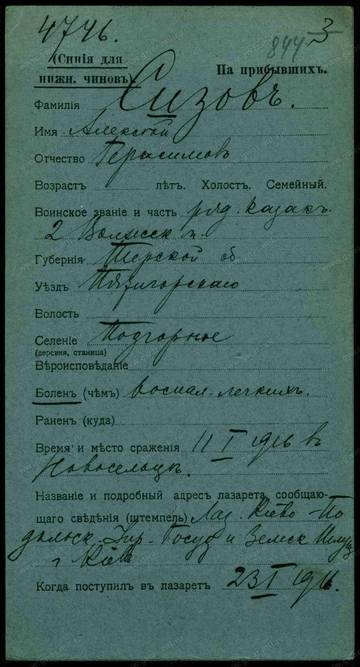 4746.
844 3
(Синія для
нижн. чиновъ).
На прибывшихъ.
Фамилія Сизовъ.
Имя Алексѣй
Отчество Герасимовъ
Возрастъ лѣтъ. Холост. Семейный.
Воинское званіе и часть ряд. казакъ.
2 Волжск п.
Губернія Терской об
Уѣздъ Пятигорскаго
Волость
Селеніе Подгорное
(деревня, станица)
Вѣроисповѣданіе
Боленъ (чѣмъ) воспал. легкихъ.
Раненъ (куда)
Время и мѣсто сраженія 11 I 1916 в
Новоселицк.
Названіе и подробный адресъ лазарета, сообщаю-
щаго свѣдѣнія (штемпель) Лаз. Кіево По
дольск. Упр. Госуд и Земск Имущ
г Кіев
Когда поступилъ въ лазаретъ 23 I 1916.